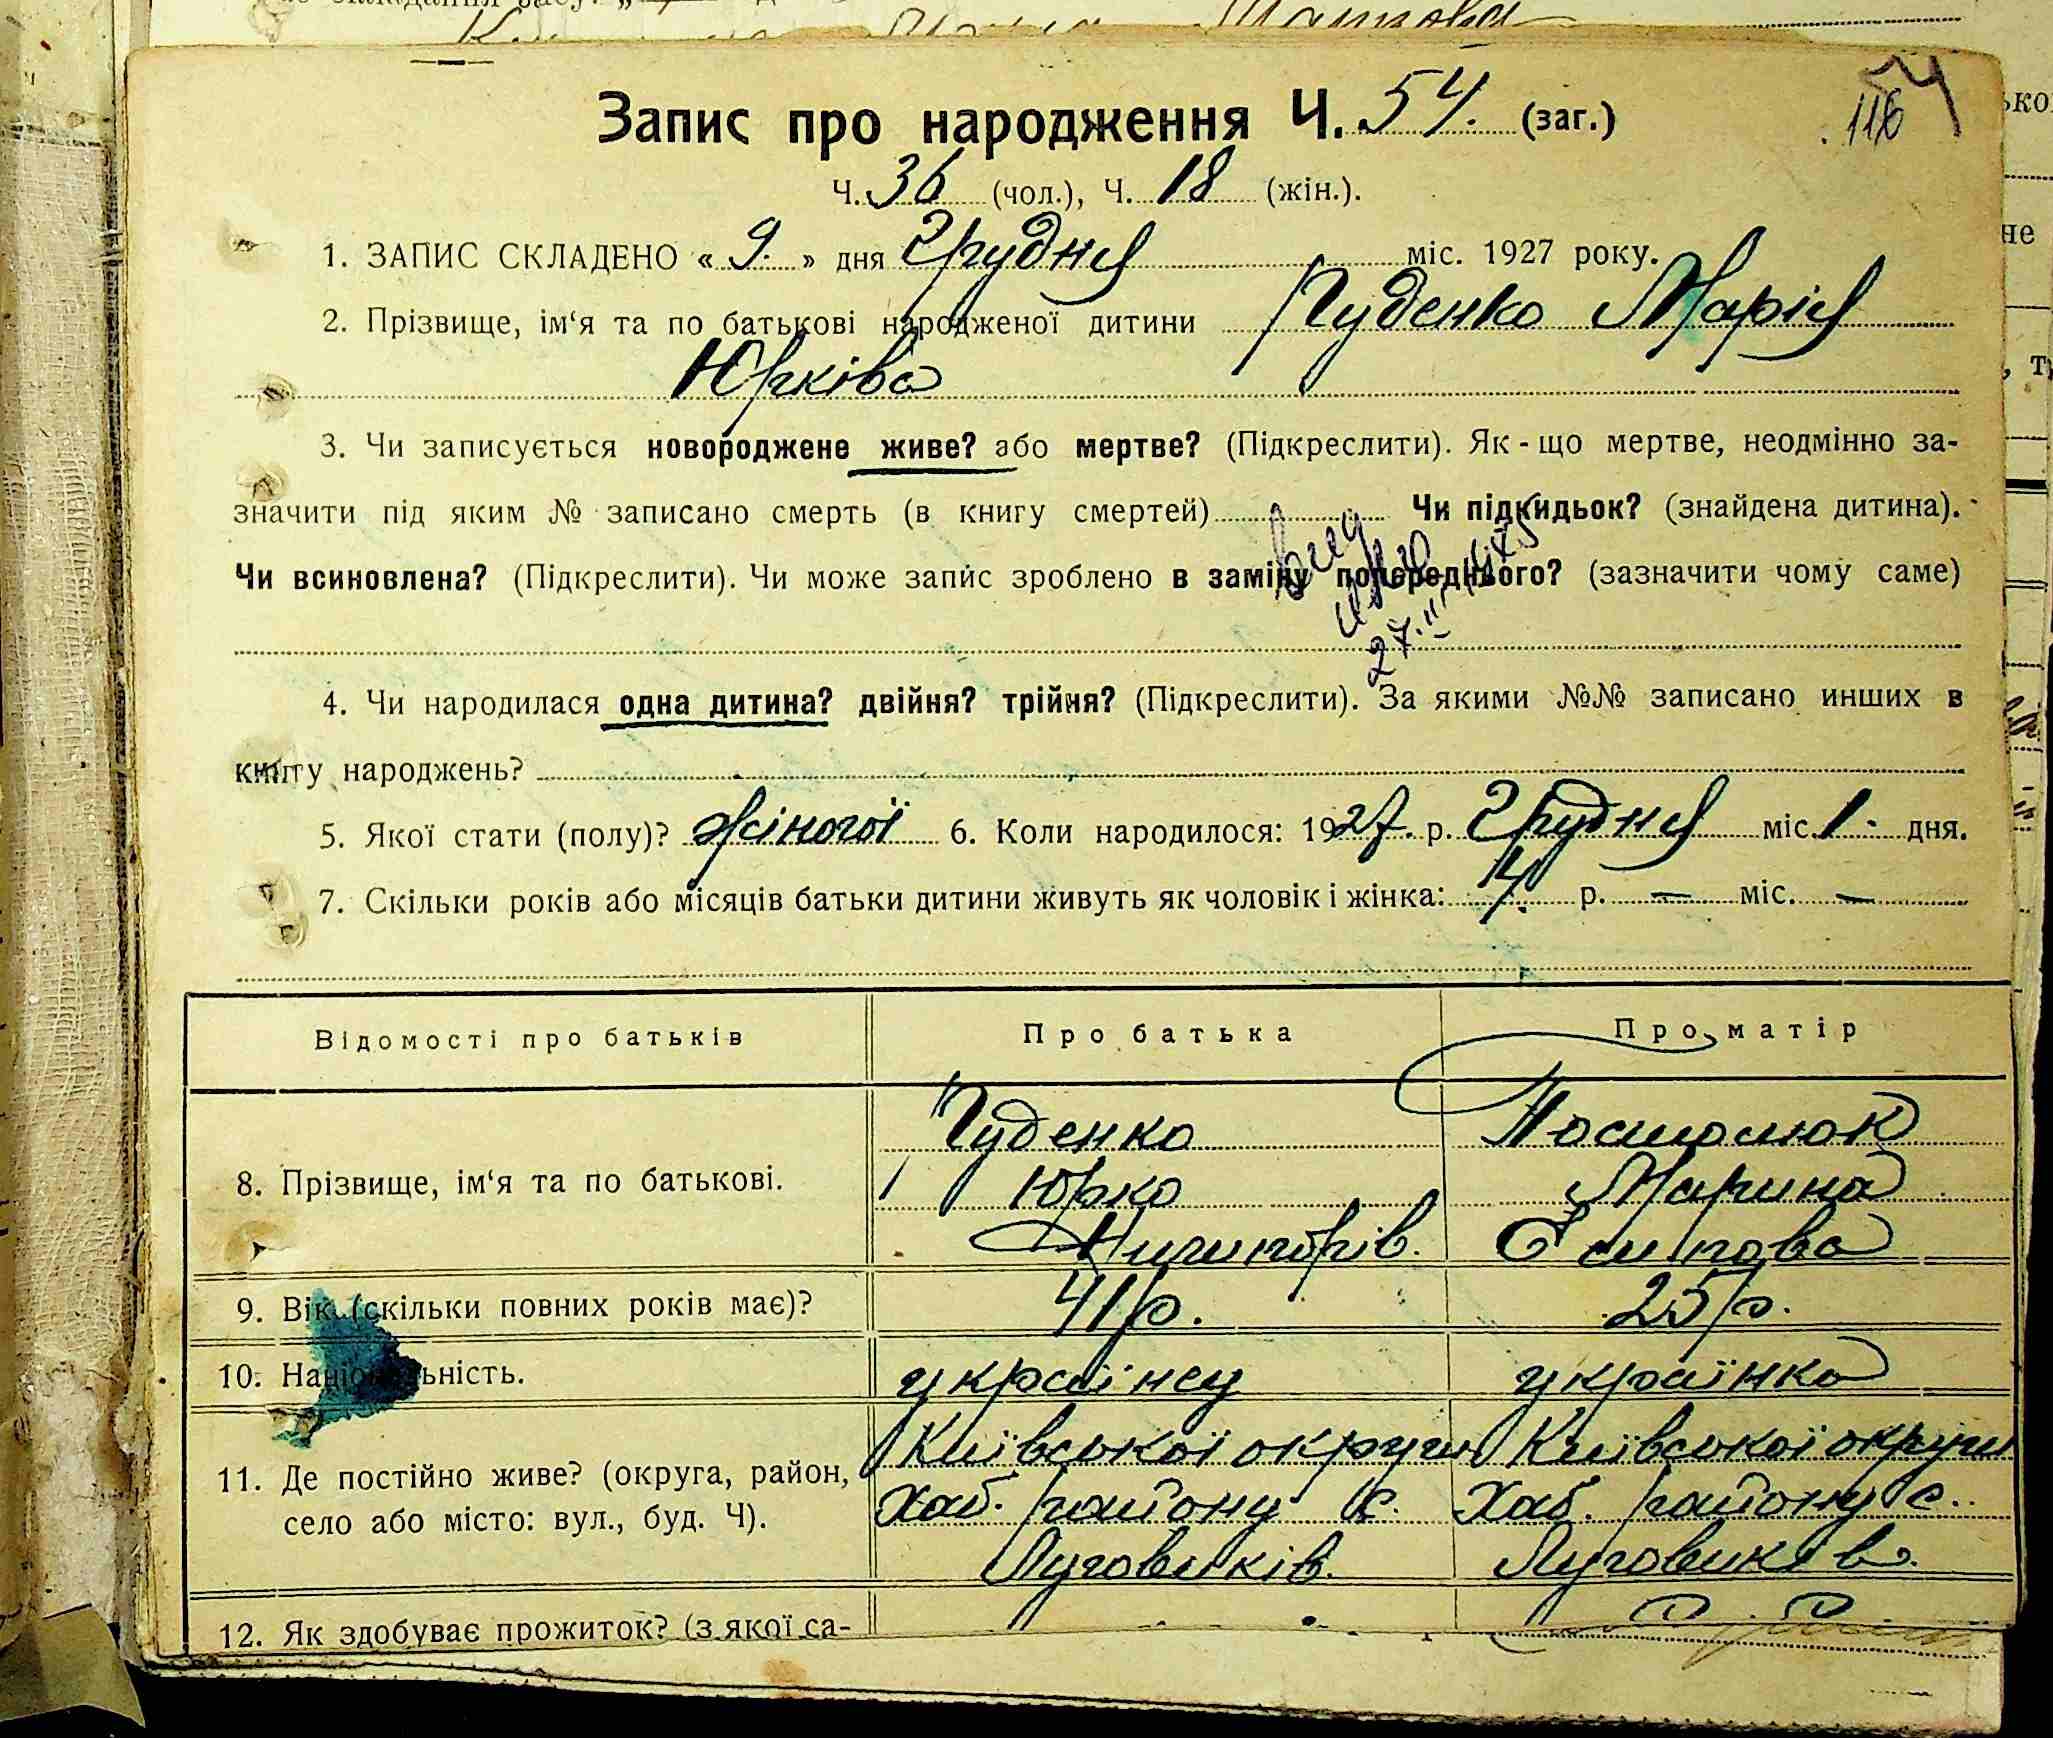 Запис про народження Ч. 54. (заг.)
116
Ч. 36 (чол.), Ч. 18 (жін.).
1. ЗАПИС СКЛАДЕНО « 9. » дня Грудня міс. 1927 року.
2. Прізвище, ім‘я та по батькові народженої дитини Руденко Марія
Юркова
3. Чи записується новороджене живе? або мертве? (Підкреслити). Як - що мертве, неодмінно за-
значити під яким № записано смерть (в книгу смертей) Чи підкидьок? (знайдена дитина).
Чи всиновлена? (Підкреслити). Чи може запис зроблено в заміну попереднього? (зазначити чому саме)
27.III
4. Чи народилася одна дитина? двійня? трійня? (Підкреслити). За якими №№ записано инших в
книгу народжень?
5. Якої стати (полу)? жіночої 6. Коли народилося: 1927. р. Грудня міс. 1. дня.
7. Скільки років або місяців батьки дитини живуть як чоловік і жінка: 4. р. — міс. —
Відомості про батьків Про батька Про матір
8. Прізвище, ім‘я та по батькові.
Руденко
Юрко
Ничипорів.
Постолюк
Марина
Осипова
9. Вік (скільки повних років має)? 41 р. 25 р.
10. Національність. українец українка
11. Де постійно живе? (округа, район,
село або місто: вул., буд. Ч).
Київської округи
Хаб. району с.
Луговиків.
Київської округи
Хаб. району с.
Луговиків.
12. Як здобуває прожиток? (з якої са-